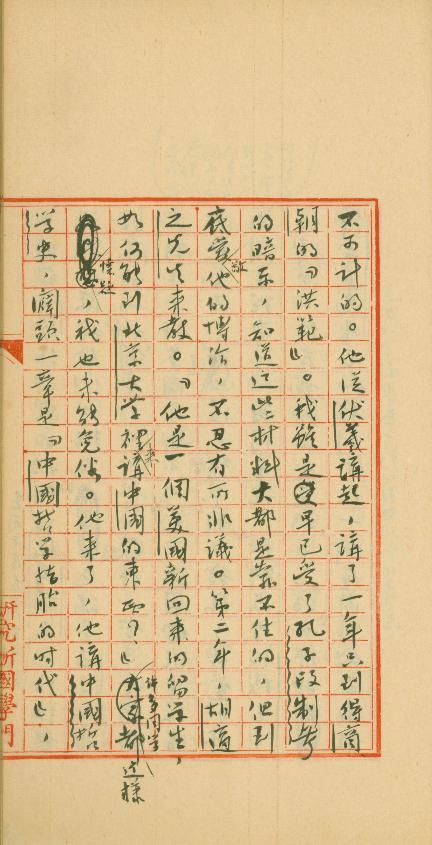 不可計的。他從伏羲講起，講了一年只到得商
朝的「洪範」。我雖是早已受了孔子改制考
的暗示，知道這些材料大都是靠不住的，但到
底愛敬他的博洽，不忍有所非議。第二年，胡適
之先生來教。「他是一個美國新回來的留學生，
如何能到北京大學裡來講中國的東西？」許多同學都這樣
懷疑，我也未能免俗。他來了，他講中國哲
學史，闢頭一章是「中國哲學結胎的時代」，
研究所國學門